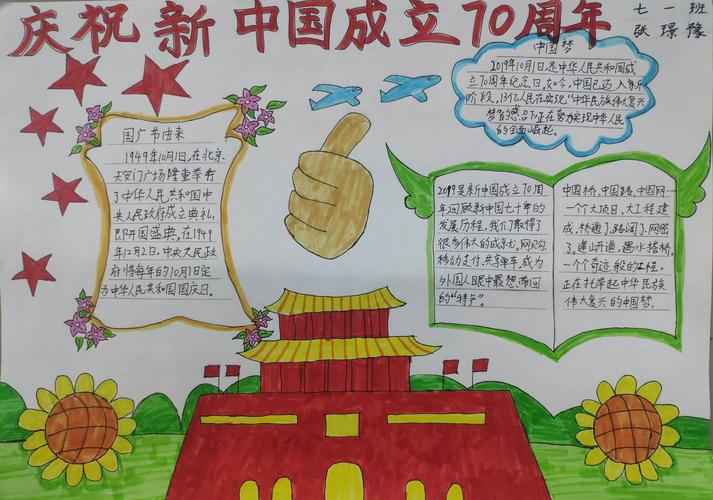 庆祝新中国成立70周年
七一班
张璟豫
中国梦
2019年10月1日,是中华人民共和国成
立70周年纪念日。如今,中国已迈入新
阶段,13亿人民在实现"中华民族伟大复兴
梦"的感召下正在努力实现中华人民
的全面崛起。
国广节由来
1949年10月1日,在北京
天安门广场隆重举行
了中华人民共和国中
央人民政府成立典礼,
即开国盛典。在1949
年12月2日,中央人民政
府将每年的10月1日定
为中华人民共和国国庆日。
2019是新中国成立70周
年回顾新中国七十年的
发展历程,我们取得了
很多伟大的成就,网购
移动支付、共享单车,成为
外国人眼中最想带回
的"特产"。
中国桥、中国路、中国网…
一个个大项目、大工程建
成,桥通了,路阔了,网密
了。逢山开道,遇水搭桥。
一个个奇迹般的工程,
正在托举起中华民族
伟大复兴的中国梦。